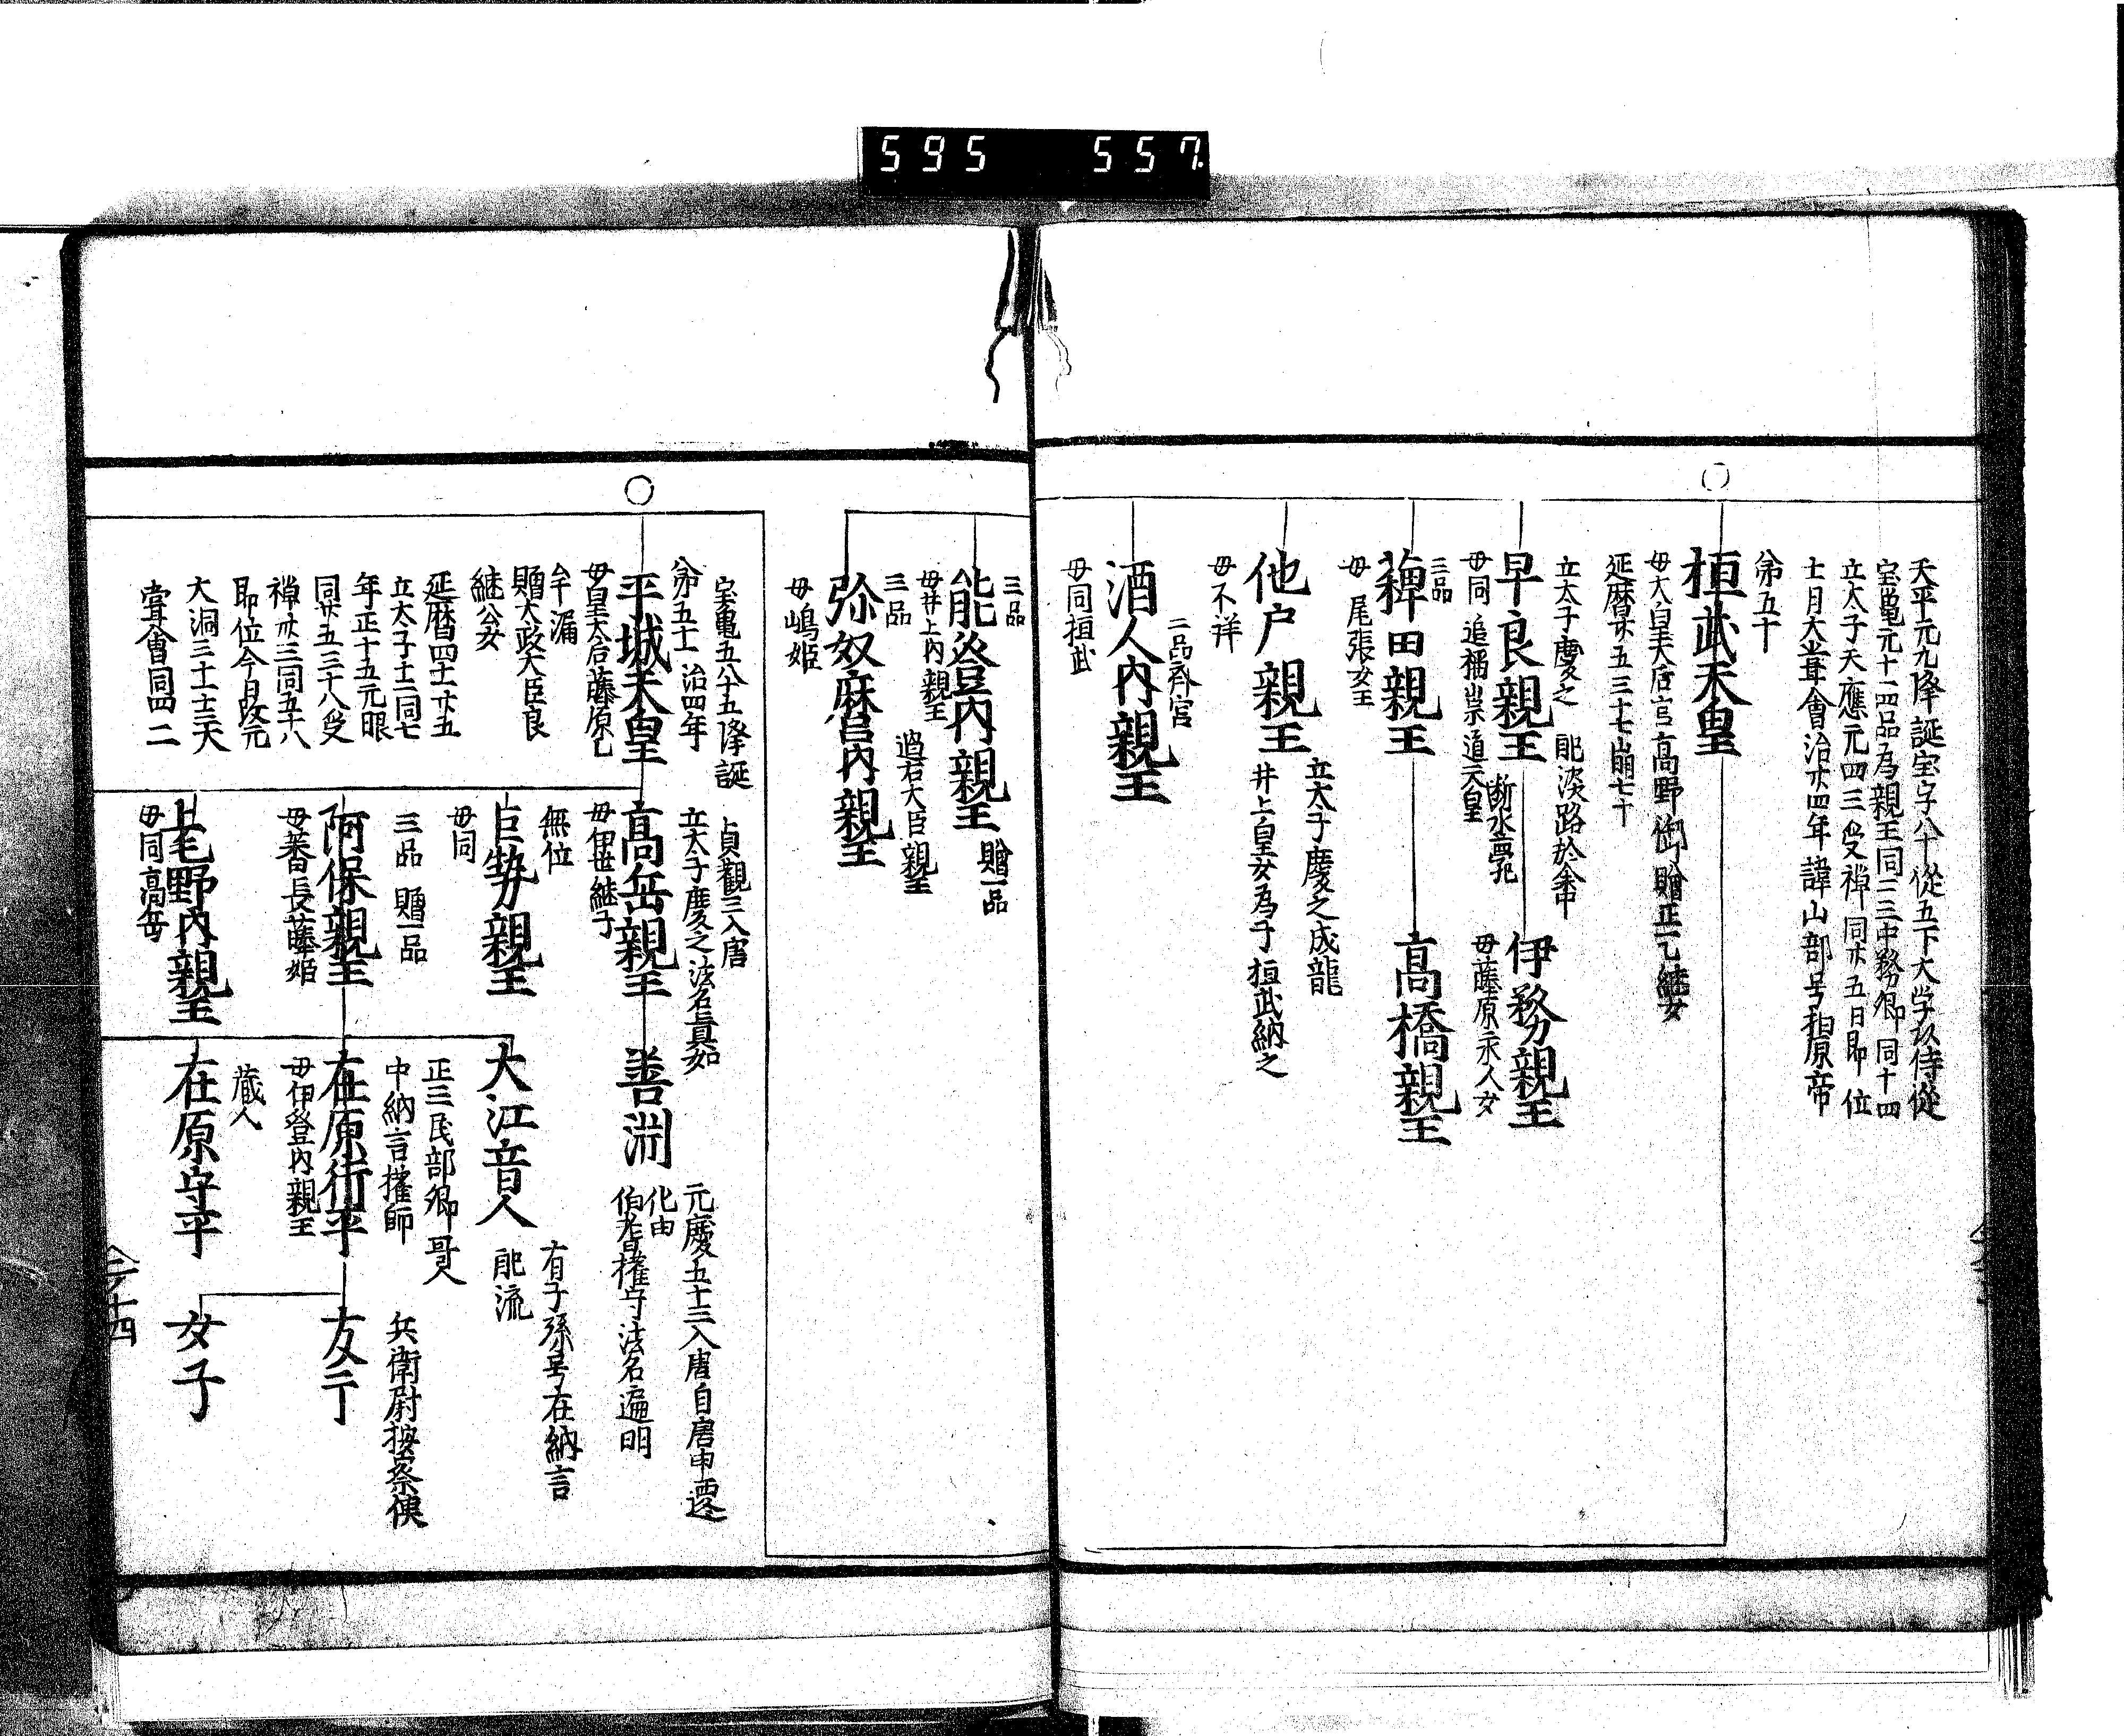 595 557
天平元九降誕宝字八十従五下大学頭侍従
宝亀元十一四品為親王同三三中務卿同十四
立太子天應元四三受禅同廿五日即位
十一月大嘗會治廿四年諱山部号柏原帝
第五十
桓武天皇
母大皇大后宮高野御贈正一乙継女
延暦廿五三十七崩七十
立太子廃之 配淡路於舎中
早良親王 断水而死
母同 追稱崇道天皇
伊務親王
母藤原永人女
三品
薭田親王
母尾張女王
高橋親王
他戸親王
立太子廃之成龍
井上皇女為子桓武納之
母不祥
二品斉宮
酒人内親王
母同桓武
三品
能登内親王 贈一品
母井上内親王 適右大臣親王
三品
弥奴麻呂内親王
母嶋姫
宝亀五八十五降誕
第五十一 治四年
平城天皇
母皇大后藤原乙
牟漏
贈太政大臣良
継公女
延暦四十一廿五
立太子士二同七
年正十五元服
同廿五三十八受
禅廿三同五十八
即位今日改元
大洞三十一十三天
嘗會同四二
貞観三入唐
立太子廃之法名真如
高岳親王
母伊世継子
無位
巨勢親王
母同
三品 贈一品
阿保親王
母蕃長藤姫
上毛野内親王
母同高岳
善渕
元慶五十三入唐自唐申遷
化由
伯耆権守法名遍明
大江音人
有子孫号在納言
配流
正三民部卿 哥人
中納言権師
在原行平
母伊登内親王
蔵人
在原守平
兵衛尉按察使
友于
女子
今十四